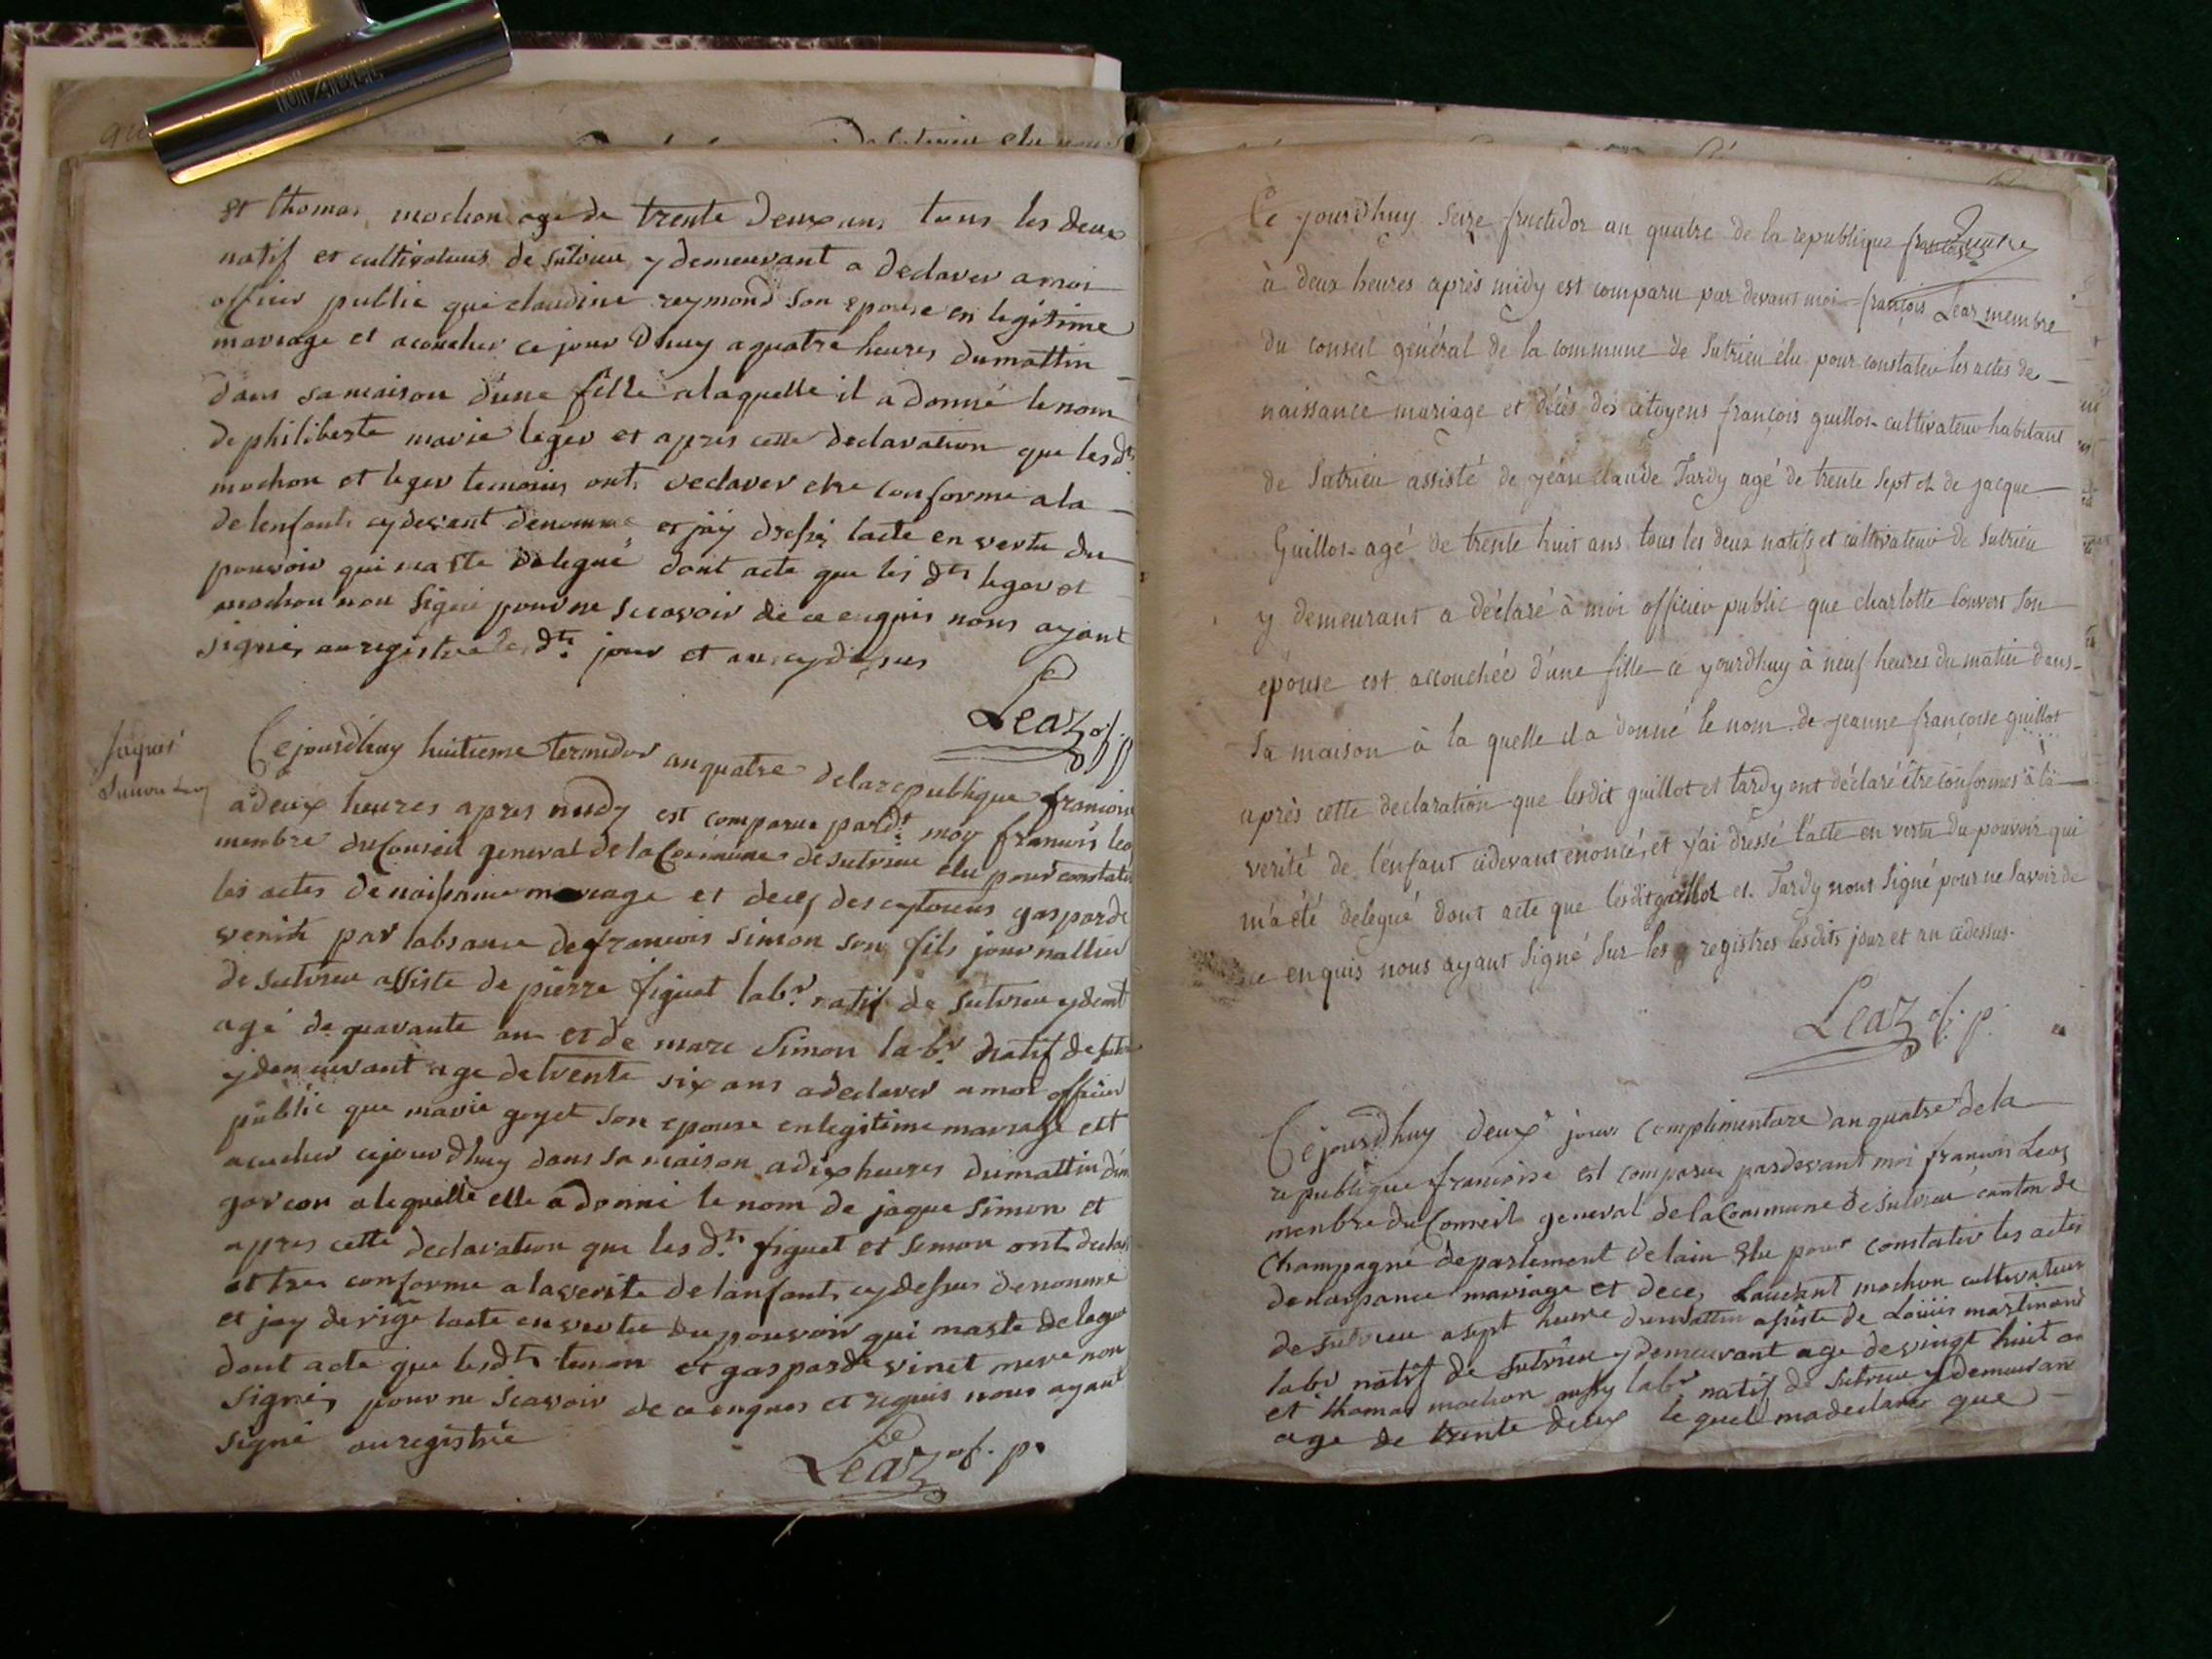 et thomas mochon age de trente deux ans tous les deux
natif et cultivateurs de sutrieu y demeurant a declarer a moi
officier public que claudine reymond son epouse en legitime
mariage et acoucher ce jour Dhuy a quatre heures du mattin
dans sa maison d'une fille a laquelle il a donné le nom
de philiberte marie leger et apres cette declaration que les dts
mochon et leger temoins ont declarer etre conforme a la
de lenfant cy devant denommé et jáy dressé lacte en vertu du
pouvoir qui ma ete delegué dont acte que les dts leger et
mochon non signé pour ne scavoir de ce enquis nous ayant
signé au registre les dts jour et an cy dessus
Leaz off
jaques
Simon
Ce jourdhuy huitieme termidor an quatre de la republique francoise
a deux heures apres midy est comparue pardt moy francois lea
menbre du Conseil general de la Commune de sutrieu elu pour constater
les actes de naissance mariage et deces des cytoiens gasparde
venite par labsance de francois simon son fils journallier
de sutrieu assiste de pierre figuet labr natif de sutrieu y demt
agé de quarante an et de marc simon labr natif de sutr
y demeurant age de trente six ans a declarer a moi officier
public que marie goyet son epouse en legitime mariage est
acucher cejourdhuy dans sa maison a dix heures du mattin d'un
garcon a lequelle elle a donné le nom de jaque simon et
apres cette declaration que les dts figuet et simon ont declar
ettre conforme a la verite de lanfant cy dessus denommé
et jay dérigé lacte en vertu du pouvoir qui maste delegue
dont acte que les dts temon et gasparde vinet mere non
signé, pour ne scavoir de ce enquis et requis nous ayant
signé au registre
Leaz of. p.
Ce jourdhuy seize fructidor an quatre de la republique francoise
à deux heures après midy est comparu par devant moi françois Leaz membre
du conseil général de la commune de Sutrieu élu pour constater les actes de
naissance mariage et décés des citoyens françois guillot cultivateur habitant
de Sutrieu assisté de jean claude Tardy agé de trente sept et de jacque
Guillot agé de trente huit ans tous les deux natifs et cultivateur de Sutrieu
y demeurant a déclaré à moi officier public que charlotte Convert son
épouse est accouchée d'une fille ce jourdhuy à neuf heures du matin dans
sa maison à la quelle il a donné le nom de jeanne françoise guillot
après cette declaration que lesdit guillot et tardy ont déclaré être conformes à la
verité de l'enfant cidevant énoncé, et j'ai dressé l'acte en vertu du pouvoir qui
m'a été delegué dont acte que lesdit guillot et Tardy nont signé pour ne savoir de
ce enquis nous ayant signé sur les registres lesdits jour et an cidessus.
Leaz of. p.
Ce jourdhuy deuxe jour complimentare an quatre de la
republique francoise est comparue pardevant moi francois Leaz
menbre du Conseil general de la Commune de sutrieu canton de
Champagne departement de lain Elu pour constater les actes
de naissance mariage et deces Laurant mochon cultivateur
de sutrieu a sept heure du mattin assiste de Louis martinand
labr natif de sutrieu y demeurant age de vingt huit an
et thomas mochon aussy labr natif de sutrieu y demeuran
age de trente deux lequel ma declarer que